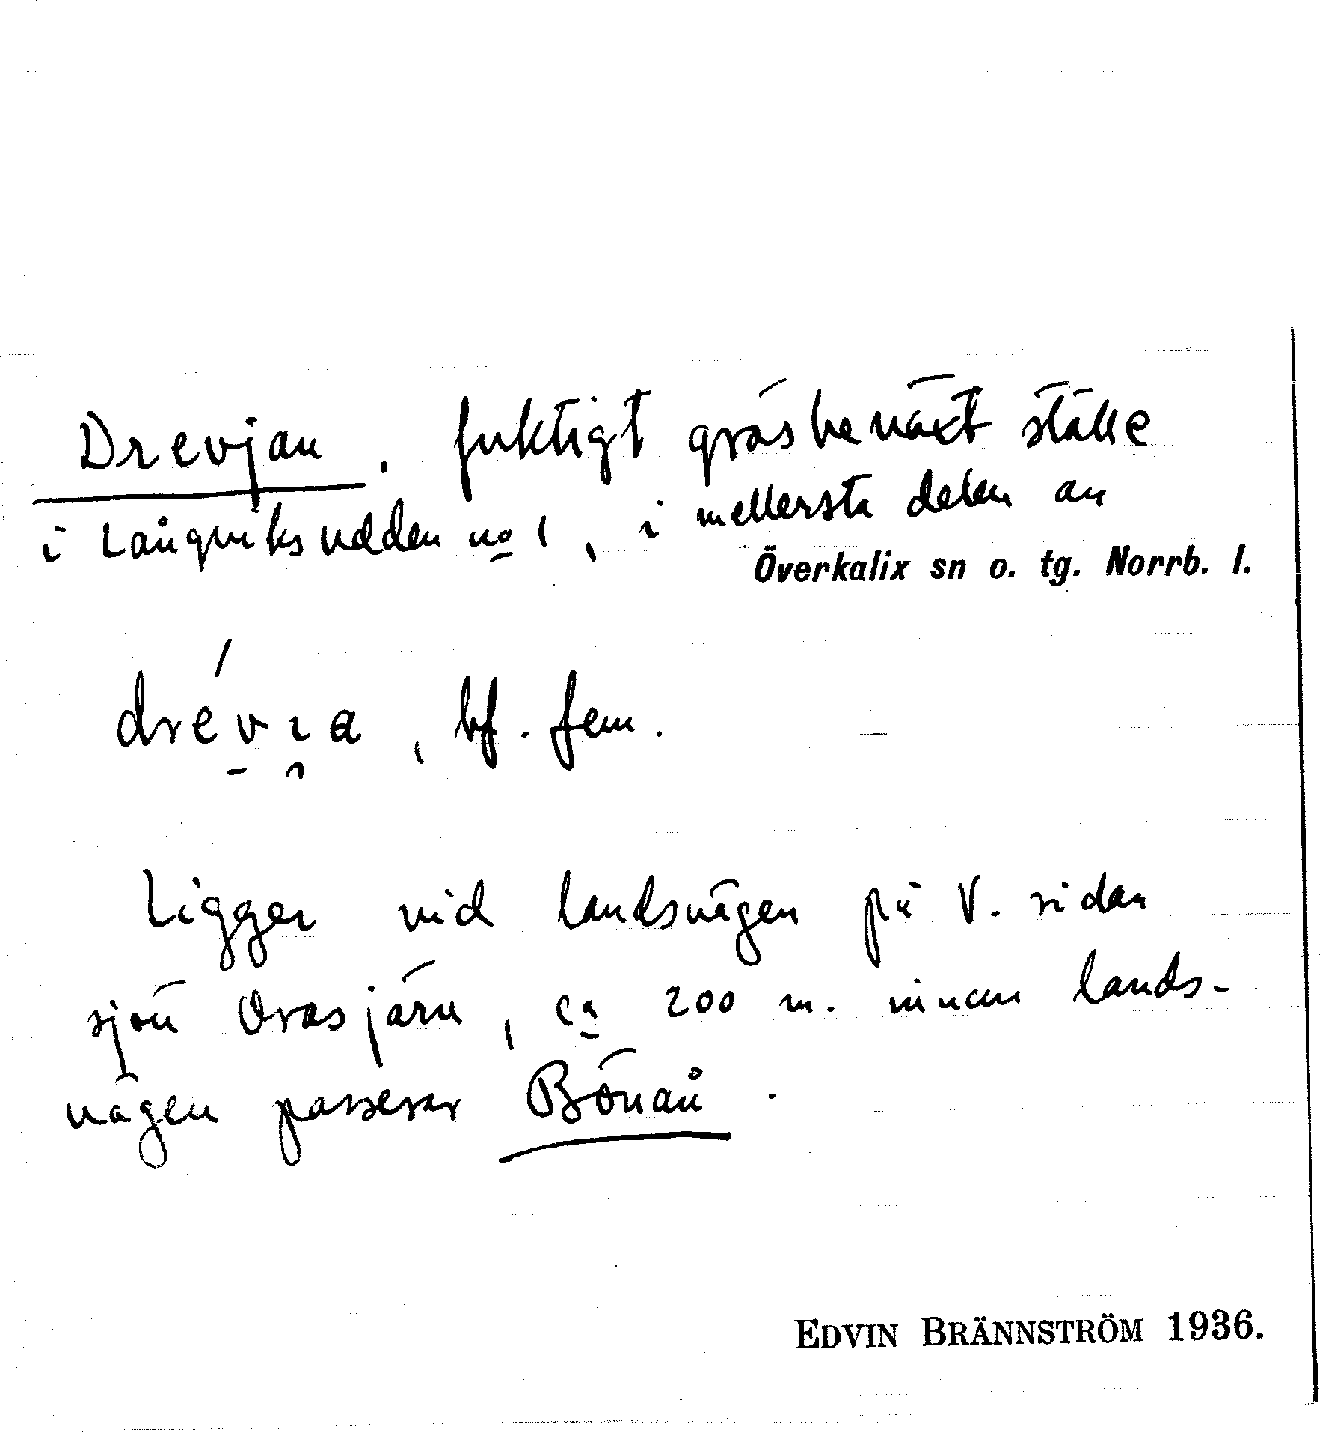 Drevjan. fuktigt gräsbeväxt ställe
i Långviksudden no 1, i mellersta delen av
Överkalix sn o. tg. Norrb. l.
drévıa, bf. fem.
Ligger vid landsvägen på V. sidan
sjön Orasjärv, ca 200 m. innan lands-
vägen passerar Bönån.
EDVIN BRÄNNSTRÖM 1936.